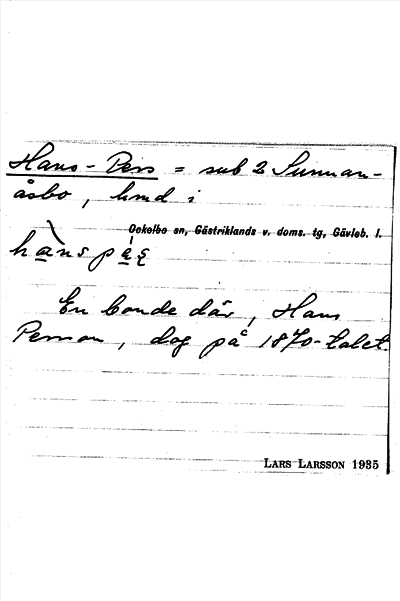 Hans-Pers = sub 2 Sunnan-
åsbo, hmd i
Ockelbo sn, Gästriklands v. doms. tg, Gävleb. l.
hans
En bonde där, Hans
Persson, dog på 1870-talet.
LARS LARSSON 1935